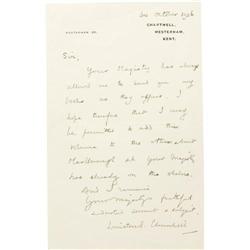 October 1936
WESTERHAM 93.
CHARTWELL,
WESTERHAM,
KENT.
Sir,
Your Majesty has always
allowed me to send you my
books as they appear. I
hope therefore that I may
be permitted to add this
volume to the others about
Marlborough wh Your Majesty
has already on the shelves.
And I remain
Your Majesty's faithful
& devoted servant & subject
Winston S. Churchill